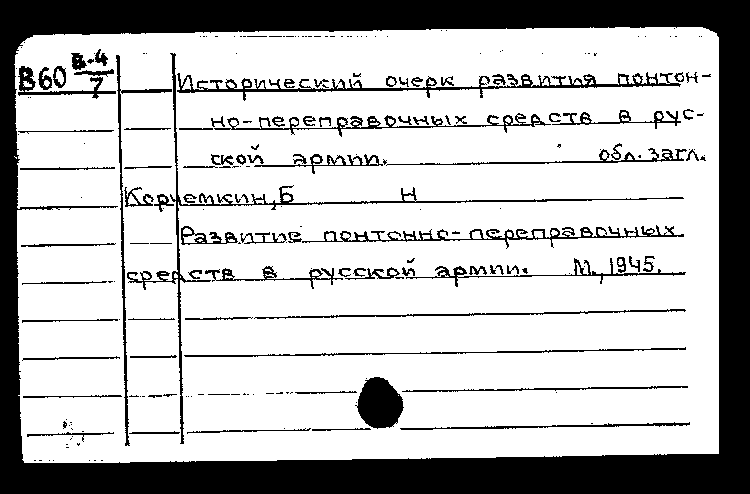 В60 В-4/7
Исторический очерк развития понтон-
но-переправочных средств в рус-
ской армии. обл. загл.
Корчемкин, Б Н
Развитие понтонно-переправочных
средств в русской армии. М., 1945.